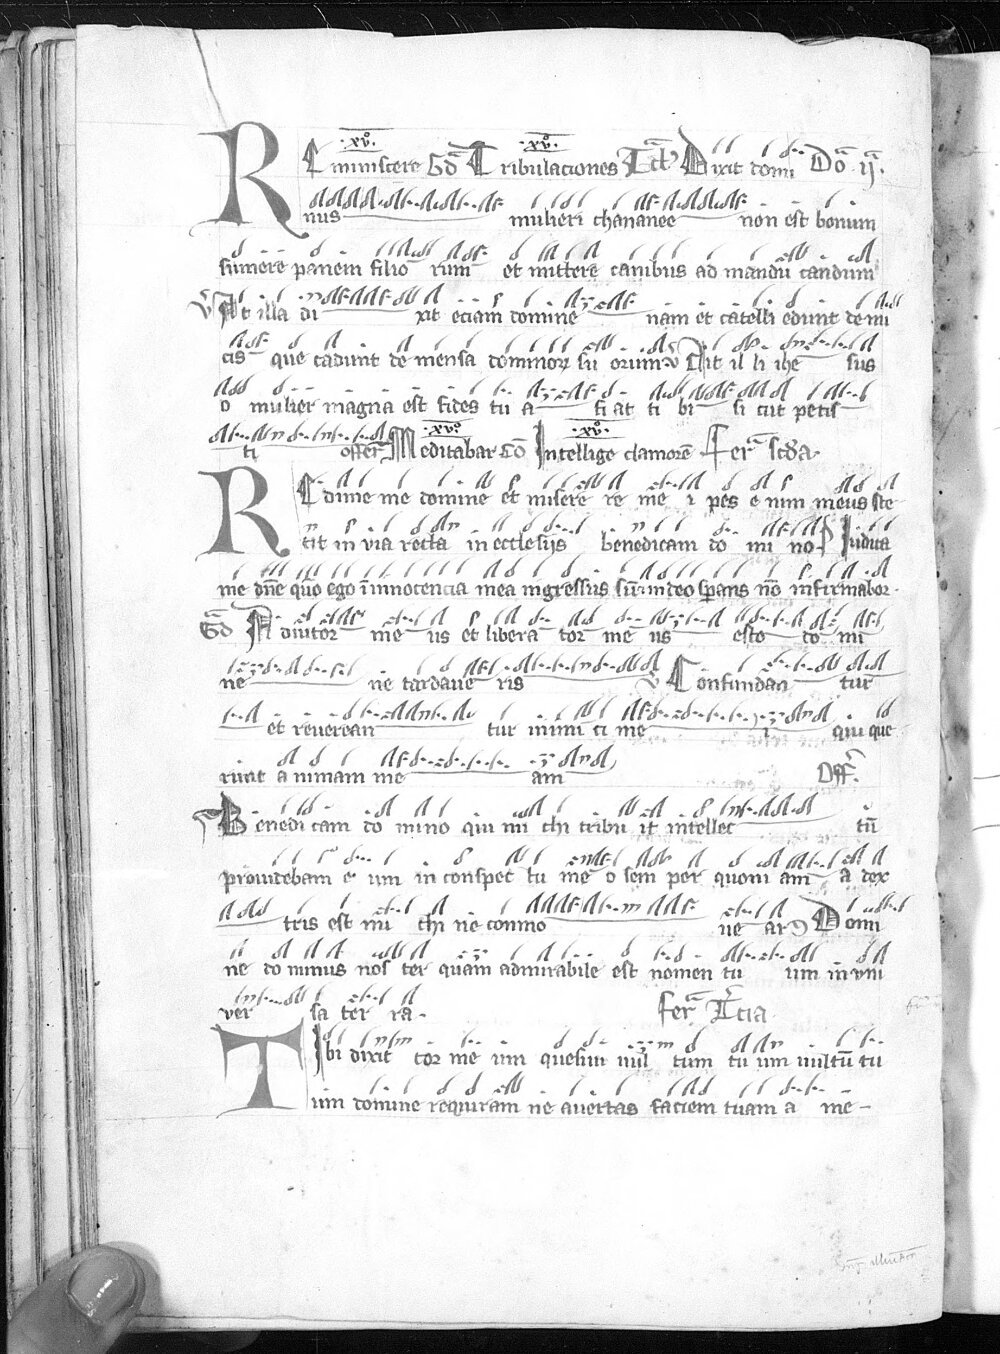 ·xv̊· ·xv̊·
REminiscere Gd̄ Tribulaciones Tct̄ Dixit domi Do᷃ · ij᷃·
nus mulieri chananee non est bonum
sumere panem filio rum et mittere canibus ad mandu candum
v̄ At illa di xit eciam domine nam et catelli edunt de mi
cis que cadunt de mensa dominoꝝ su orum v̄ Ait il li ihe sus
o mulier magna est fides tu a fi at ti bi si cut petis
ti offer̄ ·xv̊· Meditabar c̄o ·xv̊· Intellige clamorē Fer᷃ sc̄da·
REdime me domine et misere re me i pes e nim meus ste
tit in via recta in ecclesijs benedicam do mi no p̄ Iudica
me dn̄e qm̄ ego ī innocencia mea ingressus sū· in deo sperans nō infirmabor·
Gd̄ Adiutor me us et libera tor me us esto do mi
ne ne tardaue ris v̄ Confundan tur
et reverean tur inimi ci me i qui que
runt a nimam me am Off̄·
Benedi cam do mino qui mi chi tribu it intellec tū
prouidebam e um in conspec tu me o sem per quoni am a dex
tris est mi chi ne conmo ue ar cō Domi
ne do minus nos ter quam admirabile est nomen tu um in vni
ver sa ter ra· fer᷃ t̄cia
TIbi dixit cor me um quesiui uul tum tu um uultū tu
um domine requiram ne auertas faciem tuam a me –